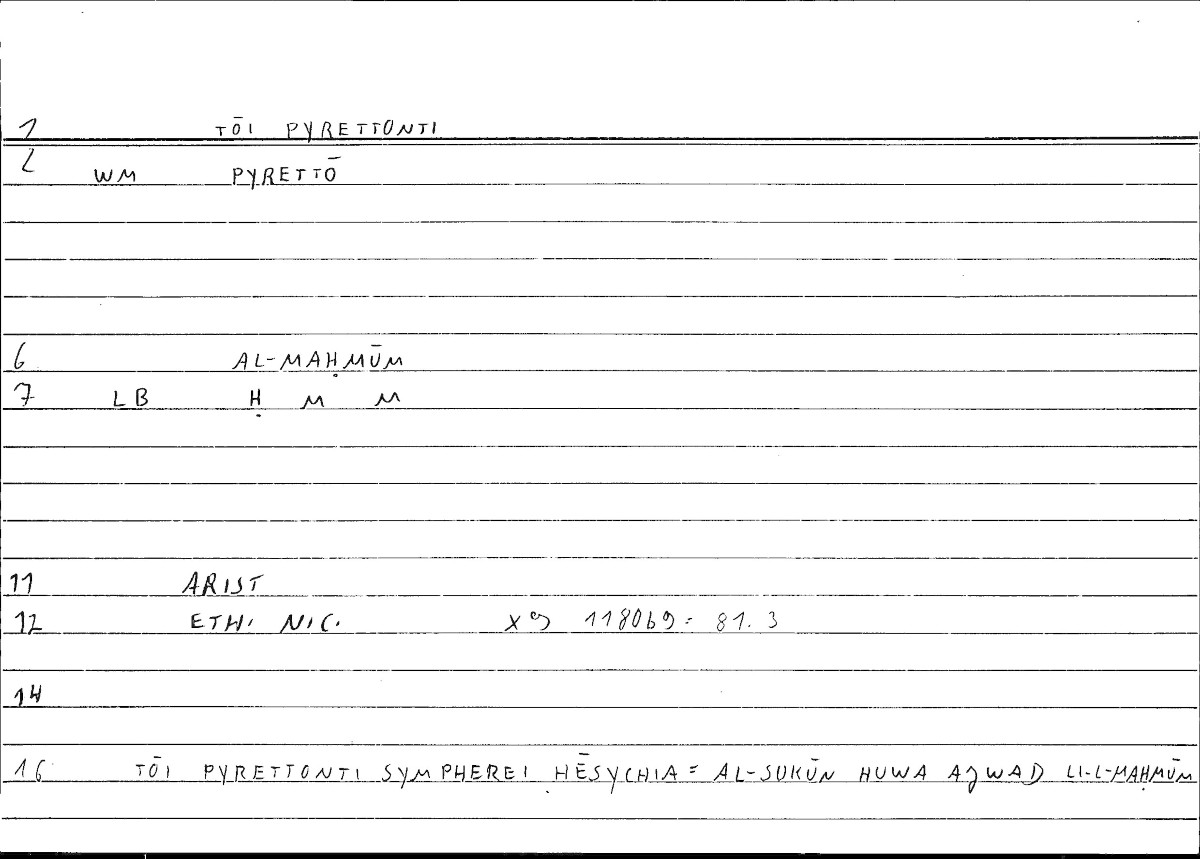 1 TŌI PYRETTONTI
2 WM PYRETTŌ
6 AL-MAḤMŪM
7 LB Ḥ M M
11 ARIST
12 ETH. NIC. X9 1180b9 = 81.3
14
16 TŌI PYRETTONTI SYMPHEREI HĒSYCHIA = AL-SUKŪN HUWA AJWAD LI-L-MAḤMŪM